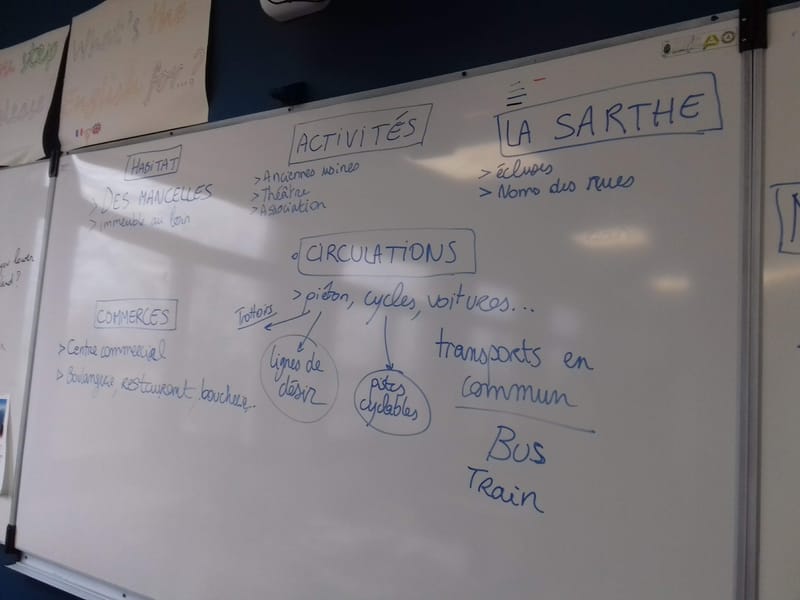 step
please
What's the
English for...?
HABITAT
> DES MANCELLES
> immeuble au loin
ACTIVITÉS
> Anciennes usines
> Théâtre
> Association
LA SARTHE
> écluses
> Noms des rues
CIRCULATIONS
> piéton, cycles, voitures...
Trottoirs
lignes de
désir
pistes
cyclables
transports en
commun
Bus
Train
COMMERCES
> Centre commercial
> Boulangerie, restaurant, boucherie...